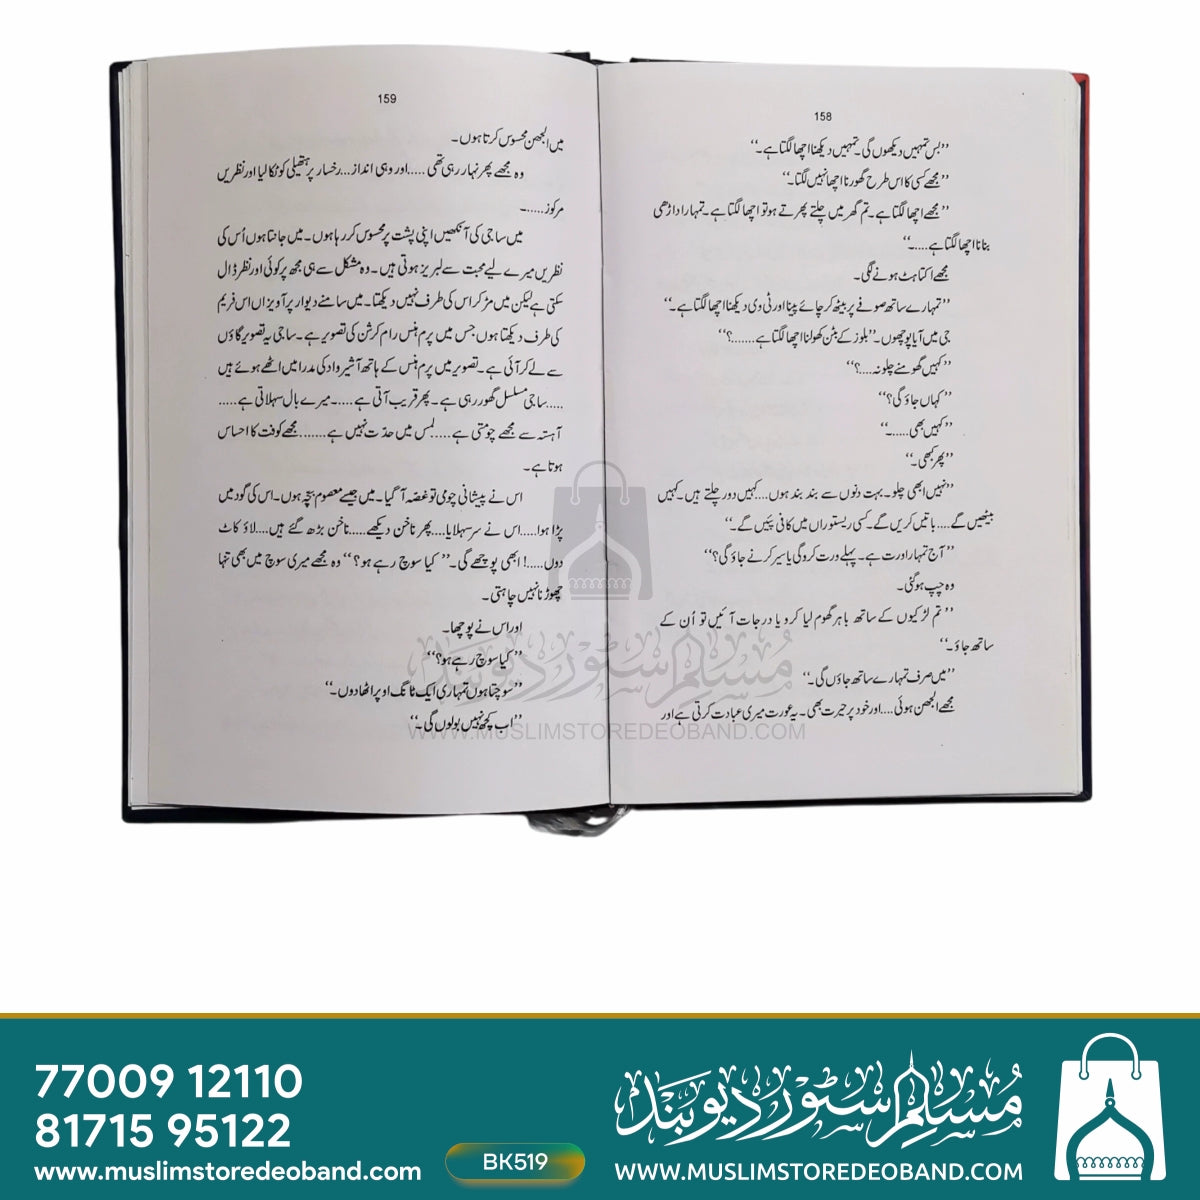 158
’’بس تمہیں دیکھوں گی۔ تمہیں دیکھنا اچھا لگتا ہے۔‘‘
’’مجھے کسی کا اس طرح گھورنا اچھا نہیں لگتا۔‘‘
’’مجھے اچھا لگتا ہے۔ تم گھر میں چلتے پھرتے ہو تو اچھا لگتا ہے۔ تمہارا داڑھی
بنانا اچھا لگتا ہے....۔‘‘
مجھے اکتاہٹ ہونے لگی۔
’’تمہارے ساتھ صوفے پر بیٹھ کر چائے پینا اور ٹی وی دیکھنا اچھا لگتا ہے۔‘‘
جی میں آیا پوچھوں۔ ’’بلوز کے بٹن کھولنا اچھا لگتا ہے.......؟‘‘
’’کہیں گھومنے چلو نہ....؟‘‘
’’کہاں جاؤ گی؟‘‘
’’کہیں بھی.....۔‘‘
’’پھر کبھی۔‘‘
’’نہیں ابھی چلو۔ بہت دنوں سے بند بند ہوں....کہیں دور چلتے ہیں۔ کہیں
بیٹھیں گے....باتیں کریں گے۔ کسی ریستوراں میں کافی پئیں گے۔‘‘
’’آج تمہارا ورت ہے۔ پہلے ورت کرو گی یا سیر کرنے جاؤ گی؟‘‘
وہ چپ ہو گئی۔
’’تم لڑکیوں کے ساتھ باہر گھوم لیا کرو یا درجات آئیں تو اُن کے
ساتھ جاؤ۔‘‘
’’میں صرف تمہارے ساتھ جاؤں گی۔‘‘
مجھے الجھن ہوئی....اور خود پر حیرت بھی۔ یہ عورت میری عبادت کرتی ہے اور
159
میں الجھن محسوس کرتا ہوں۔
وہ مجھے پھر نہار رہی تھی.....اور وہی انداز...رخسار پر ہتھیلی کو ٹکا لیا اور نظریں
مرکوز......۔
میں ساجی کی آنکھیں اپنی پشت پر محسوس کر رہا ہوں۔ میں جانتا ہوں اُس کی
نظریں میرے لیے محبت سے لبریز ہوتی ہیں۔ وہ مشکل سے ہی مجھ پر کوئی اور نظر ڈال
سکتی ہے لیکن میں مڑ کر اس کی طرف نہیں دیکھتا۔ میں سامنے دیوار پر آویزاں اس فریم
کی طرف دیکھتا ہوں جس میں پرم ہنس رام کرشن کی تصویر ہے۔ ساجی یہ تصویر گاؤں
سے لے کر آئی ہے۔ تصویر میں پرم ہنس کے ہاتھ آشیرواد کی مدرا میں اٹھے ہوئے ہیں
.....ساجی مسلسل گھور رہی ہے۔ پھر قریب آتی ہے....۔ میرے بال سہلاتی ہے.....
آہستہ سے مجھے چومتی ہے.....لمس میں حدّت نہیں ہے.......مجھے کوفت کا احساس
ہوتا ہے۔
اس نے پیشانی چومی تو غصّہ آ گیا۔ میں جیسے معصوم بچّہ ہوں۔ اس کی گود میں
پڑا ہوا.....اس نے سر سہلایا....پھر ناخن دیکھے.....ناخن بڑھ گئے ہیں....لاؤ کاٹ
دوں.....! ابھی پوچھے گی۔ ’’کیا سوچ رہے ہو؟‘‘ وہ مجھے میری سوچ میں بھی تنہا
چھوڑنا نہیں چاہتی۔
اور اس نے پوچھا۔
’’کیا سوچ رہے ہو؟‘‘
’’سوچتا ہوں تمہاری ایک ٹانگ اوپر اٹھا دوں۔‘‘
’’اب کچھ نہیں بولوں گی۔‘‘
مسلم سٹور دیوبند
WWW.MUSLIMSTOREDEOBAND.COM
77009 12110
81715 95122
www.muslimstoredeoband.com
BK519
مسلم سٹور دیوبند
WWW.MUSLIMSTOREDEOBAND.COM